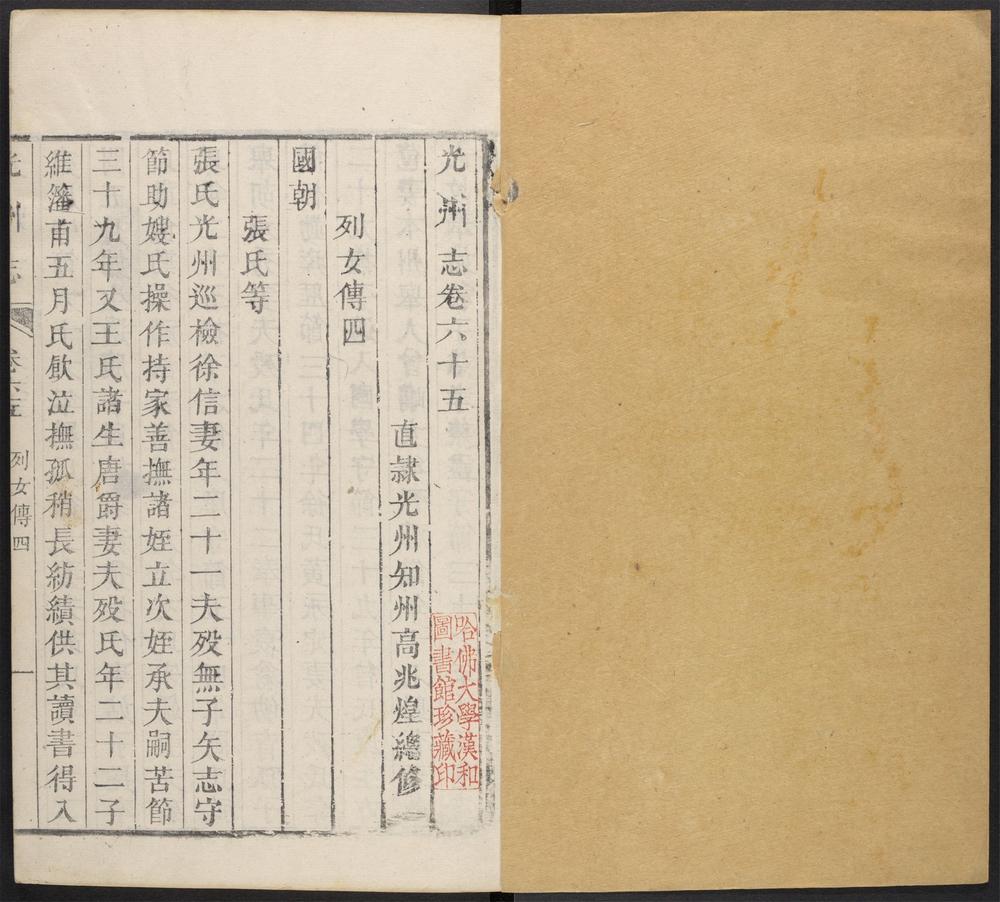 光州志卷六十五
直隸光州知州高兆煌總修
列女傳四
國朝
張氏等
張氏光州巡檢徐信妻年二十一夫歿無子矢志守
節助嫂氏操作持家善撫諸姪立次姪承夫嗣苦節
三十九年又王氏諸生唐爵妻夫歿氏年二十二子
維藩甫五月氏飲泣撫孤稍長紡績供其讀書得入
光州志
卷六十五
列女傳四
一
哈佛大學漢和
圖書館珍藏印